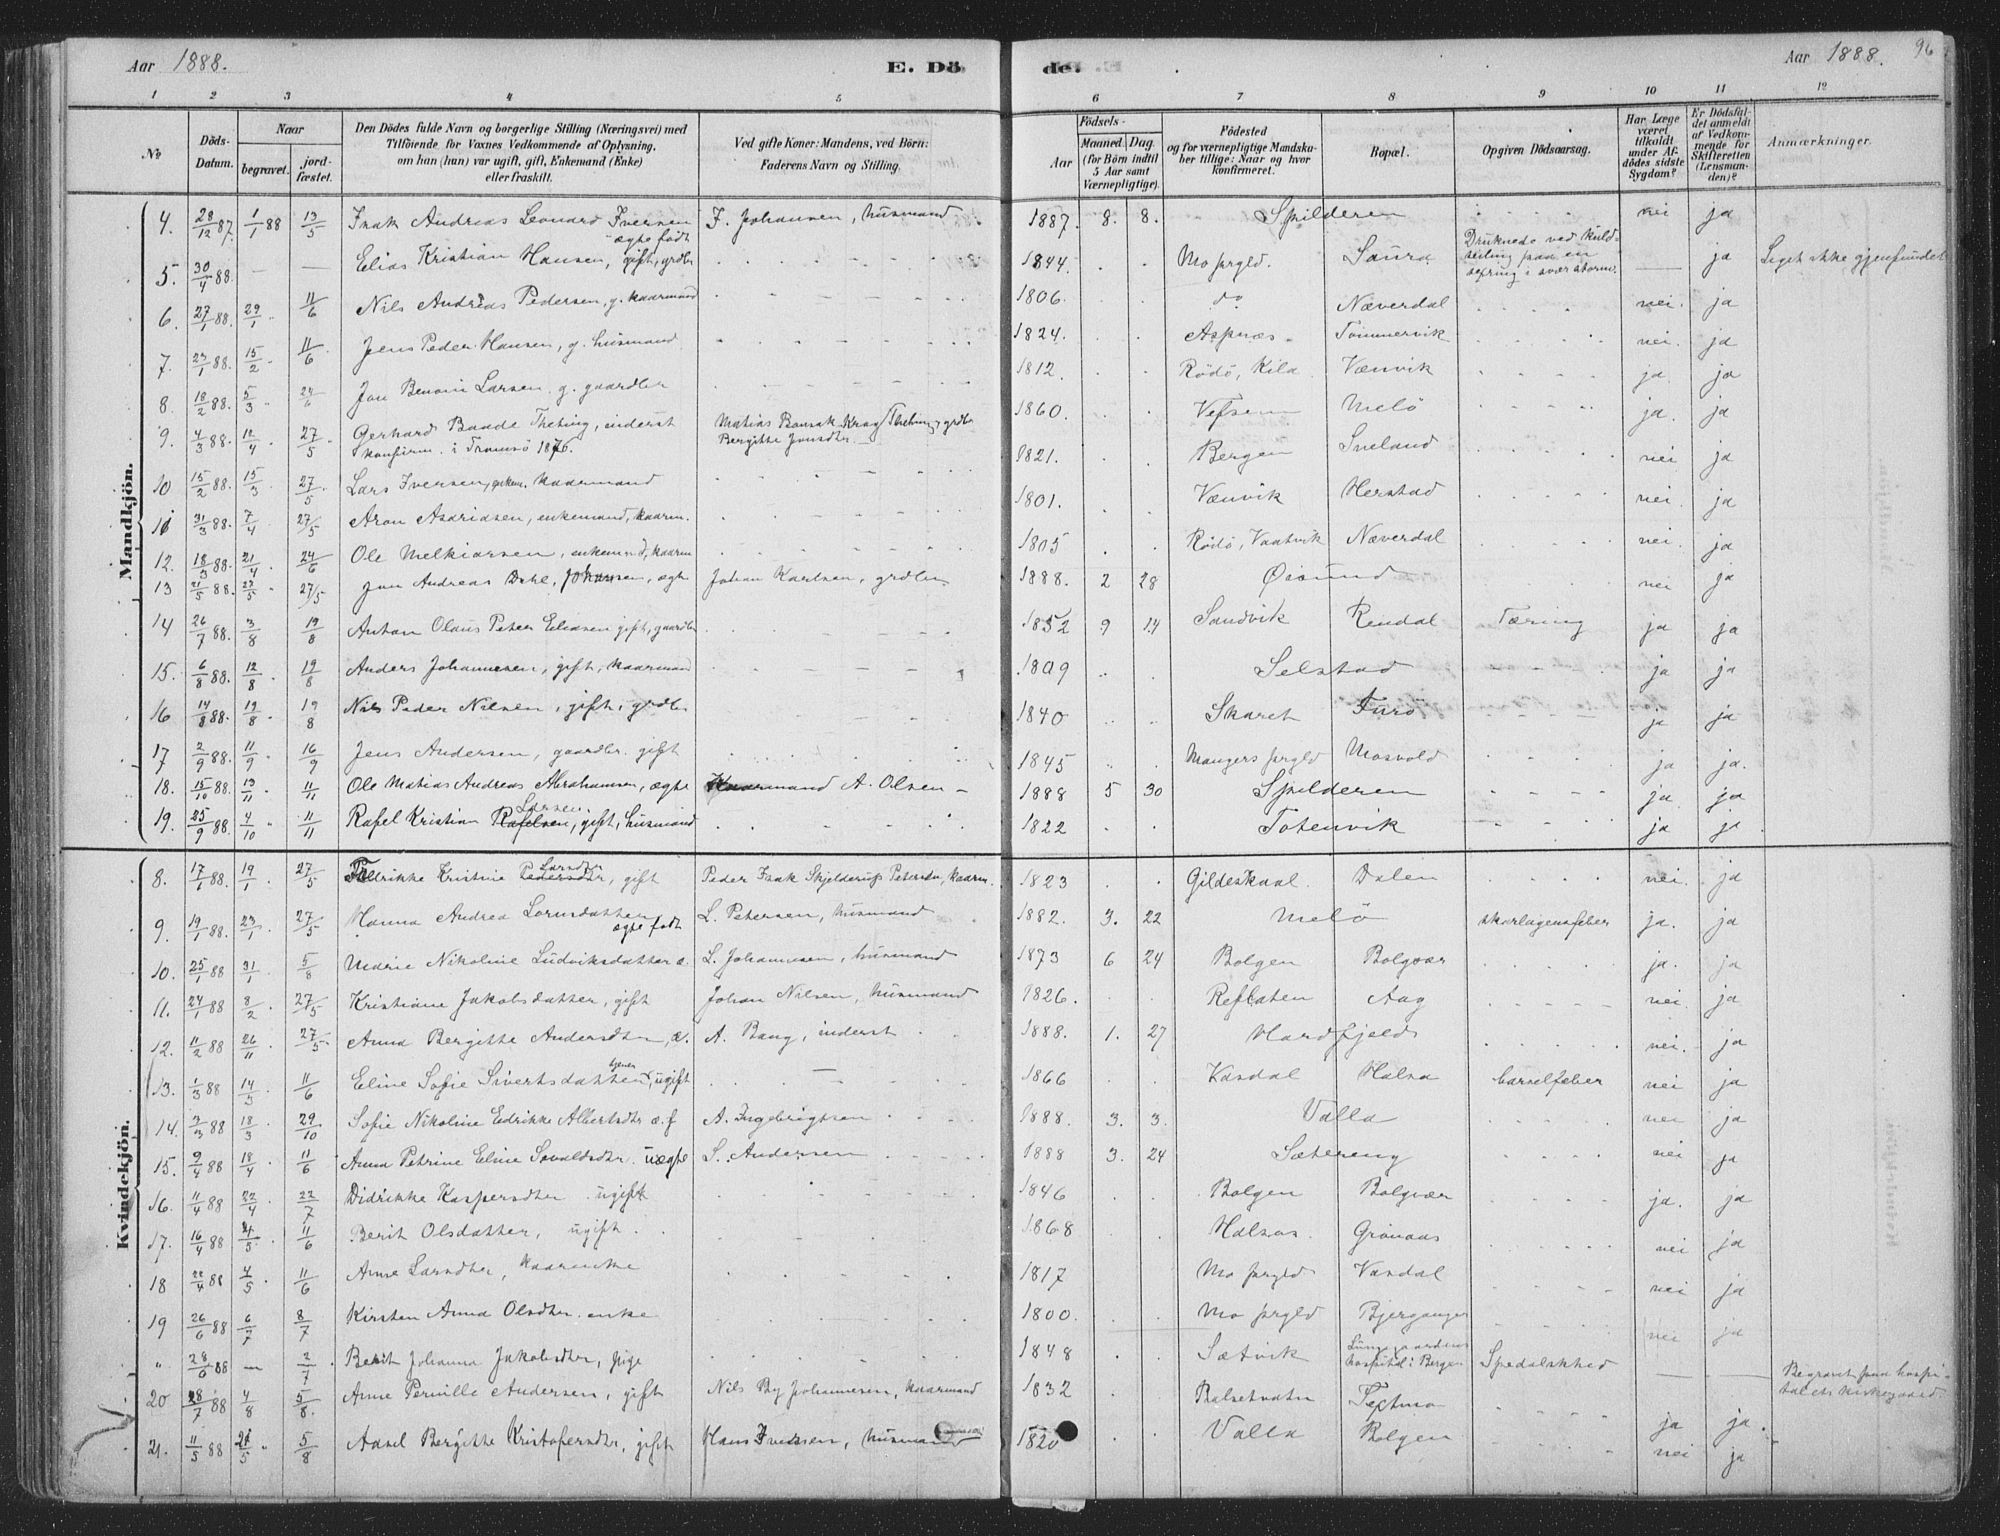 Aar 1888.
E. Dö
de.
Aar 1888.
96
1 2 3 4 5 6 7 8 9 10 11 12
No
Döds-Datum.
Naar
begravet.
jord-fæstet.
Den Dödes fulde Navn og borgerlige Stilling (Næringsvei) med
Tilföiende for Voxnes Vedkommende af Oplysning,
om han (hun) var ugift, gift, Enkemand (Enke)
eller fraskilt.
Ved gifte Koner: Mandens, ved Börn:
Faderens Navn og Stilling.
Födsels-
Aar
Maaned. Dag.
(for Börn indtil
5 Aar samt
Værnepligtige).
Födested
og for værnepligtige Mandska-
ber tillige: Naar og hvor
konfirmeret.
Bopæl.
Opgiven Dödsaarsag.
Har Læge
været
tilkaldt
under Af-
dödes sidste
Sygdom?
Er Dödsfal-
det anmeldt
af Vedkom-
mende for
Skifteretten
(Lensman-
den)?
Anmærkninger.
Mandkjön.
4. 28/12 87. 1/1 88 13/5 Isak Andreas Leonard Iversen ægte födt I. Johansen, husmand 1887 8. 8. Spilderen nei ja
5. 30/4 88. — — Elias Kristian Hansen, gift, grdbr 1844. Mo prgld. Saura Druknede ved kuld- seiling paa en sefring i svær storm. — ja Liget ikke gjenfundet
6. 27/1 88. 29/1 11/6 Nils Andreas Pedersen, g. kaarmand 1806. do Næverdal nei. ja
7. 23/1 88. 15/2 11/6 Jens Peder Hansen, g. husmand 1824. Aspnæs Tömmervik nei. ja
8. 18/2 88. 5/3 24/6 Jon Benoni Larsen g. gaardbr 1812. Rödö, Kila Vænvik ja. ja
9. 4/3 88. 12/4 27/5 Gerhard Baade Theting, inderst konfirm. i Tromsö 1876. Matias Bonsak Krag Theting, grdbr Bergitte Jonsdtr. 1860. Vefsen Melö ja. ja
10 15/2 88. 15/3 27/5 Lars Iversen, enkem. kaarmand 1821. Bergen Sneland nei ja
11 31/3 88. 7/4 27/5 Aron Asariasen, enkemand, kaarm. 1801. Vænvik Herstad nei. ja
12. 18/3 88. 21/4 24/6 Ole Melkiorsen, enkemnd, kaarm 1805 Rödö, Vaatvik Næverdal nei. ja
13 21/5 88. 22/5 27/5 Jon Andreas Dahl, Johansen, ægte Johan Karlsen, grdbr 1888. 2 28 Öisund nei ja
14 26/7 88. 3/8 19/8 Anton Olaus Peter Eliasen gift, gaardbr 1852 9 14 Sandvik Rendal Tæring ja ja
15. 6/8 88. 12/8 19/8 Anders Johannesen, gift, kaarmand 1809 Selstad ja ja
16 14/8 88. 19/8 19/8 Nils Peder Nilsen, gift, grdbr 1840 Skaret Furö ja ja
17 2/9 88. 11/9 16/9 Jens Andersen, gaardbr. gift 1845 Mangers prgld Mosvold ja ja.
18. 15/10 88. 13/11 11/11 Ole Matias Andreas Abrahamsen, ægte Kaarmand A. Olsen – 1888 5 30 Spilderen ja. ja
19. 25/9 88. 4/10 11/11 Rafel Kristian Rafelsen Larsen, gift, husmand 1822 Totenvik ja ja
Kvindekjön.
8. 17/1 88. 19/1 27/5 Fredrikke Kristine Pedersdtr Larsdtr, gift Peder Isak Skjelderup Petersen, kaarm. 1823 Gildeskaal. Dalen nei. ja
9. 19/1 88. 23/1 27/5 Hanna Andrea Lornsdatter ægte födt L. Petersen, husmand 1882. 3. 22 Melö skarlagensfeber ja. ja
10. 25/1 88 31/1 5/8 Nikoline Ludviksdatter æ. L. Johannesen, husmand 1873 6 24 Bolgen Bolgvær ja. ja
11. 24/1 88 8/2 27/5 Kristiane Jakobsdatter, gift Johan Nilsen, husmand 1826. Reflaten Aag nei. ja
12. 11/2 88 26/11 27/5 Anna Bergitte Andersdtr, æ. A. Bang, inderst 1888. 1. 27 Hardfjeld nei. ja
13. 1/3 88 14/3 11/6 Eline Sofie Sivertsdatter, tjener ugift — 1866 Vasdal Halsa barselfeber nei ja
14. 3/3 88 18/3 29/10 Sofie Nikoline Edrikke Albertsdtr æ. f A. Ingebrigtsen 1888. 3. 3. Valla nei ja
15. 9/4 88 18/4 11/6 Anna Petrine Eline uægte S. Andersen 1888 3. 24 Sætereng nei ja
16. 11/4 88 22/4 22/7 Didrikke Kaspersdtr. ugift 1846 Bolgen Bolgvær ja. ja
17. 16/4 88 4/5 11/6 Berit Olsdatter, ugift 1868 Halsos. Grönaas nei ja
18 22/4 88 4/5 11/6 Anne Larsdtr, kaarenke 1817 Mo prgld Vasdal nei ja
19 26/6 88 6/7 8/7 Kirsten Anna Olsdtr. enke 1800. Mo prgld Bjerganger nei ja
" 28/6 88 — 2/7 Berit Johanna Jakobsdtr, pige 1848 Sætvik Lungegaardens hospital i Bergen Spedalskhed — — Begravet paa hospi- talets kirkegaard
20 28/7 88 4/8 5/8. Anne Pernille Andersen, gift Nils By Johannesen, kaarmand 1832 Balsetvatn ja ja
21. 11/5 88 21/5 5/8 Axsel Bergitte Kristofersdtr, gift Hans Iversen, husmand 1820 Valla Bolgen nei ja